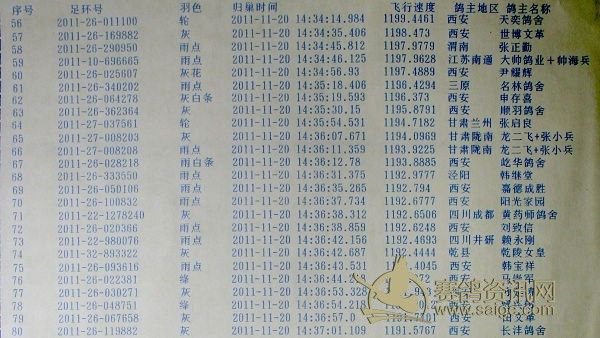 序号 足环号 羽色 归巢时间 飞行速度 鸽主地区 鸽主名称
56 2011-26-011100 轮 2011-11-20 14:34:14.984 1199.4461 西安 天奕鸽舍
57 2011-26-169882 灰 2011-11-20 14:34:35.15 1198.473 西安 世博文革
58 2011-26-290950 雨点 2011-11-20 14:34:45.258 1197.9759 渭南 张正勤
59 2011-10-696665 雨点 2011-11-20 14:34:46.125 1197.9628 江苏南通 大帅鸽业+帅海兵
60 2011-26-025607 灰花 2011-11-20 14:34:56.93 1197.4889 西安 尹耀辉
61 2011-26-340202 雨点 2011-11-20 14:35:18.154 1196.4294 三原 名林鸽舍
62 2011-26-064278 灰白条 2011-11-20 14:35:19.593 1196.373 西安 申存喜
63 2011-26-362364 灰 2011-11-20 14:35:30.15 1195.8791 西安 顺羽鸽舍
64 2011-27-037561 轮 2011-11-20 14:35:54.531 1194.7182 甘肃兰州 张启良
65 2011-27-008203 灰 2011-11-20 14:36:07.671 1194.0969 甘肃陇南 龙二飞+张小兵
66 2011-27-008208 雨点 2011-11-20 14:36:11.359 1193.9225 甘肃陇南 龙二飞+张小兵
67 2011-26-028218 雨白条 2011-11-20 14:36:12.78 1193.8885 西安 屹华鸽舍
68 2011-26-333550 雨点 2011-11-20 14:36:31.375 1192.9778 泾阳 韩继堂
69 2011-26-05D106 雨点 2011-11-20 14:36:35.265 1192.794 西安 嘉德成胜
70 2011-26-100832 雨点 2011-11-20 14:36:37.734 1192.6771 西安 阳光家园
71 2011-22-1278240 灰 2011-11-20 14:36:38.312 1192.6506 四川成都 黄药师鸽舍
72 2011-26-020366 雨点 2011-11-20 14:36:38.859 1192.6248 西安 刘致信
73 2011-22-980076 雨点 2011-11-20 14:36:42.156 1192.4693 四川井研 赖永刚
74 2011-32-893322 灰 2011-11-20 14:36:42.687 1192.4444 乾县 乾陵女皇
75 2011-26-093616 雨点 2011-11-20 14:36:43.531 .4045 西安 韩宝祥
76 2011-26-022381 绛 2011-11-20 14:36:44. 西安 马崇军
77 2011-26-030271 灰 2011-11-20 14:36:53.328 西安
78 2011-26-048751 绛 2011-11-20 14:36:54.218 西安
79 2011-26-067658 灰 2011-11-20 14:36:57.0 西安 田文革
80 2011-26-119882 灰 2011-11-20 14:37:01.109 1191.5767 西安 长沣鸽舍
赛鸽资讯网
www.saige.com